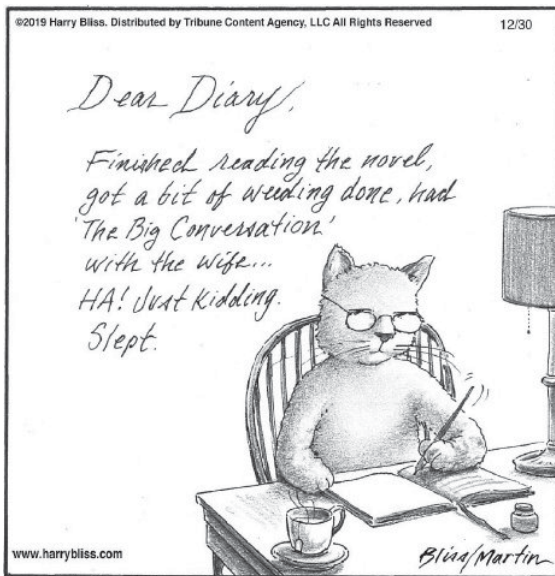 ©2019 Harry Bliss. Distributed by Tribune Content Agency, LLC All Rights Reserved 12/30
Dear Diary,
Finished reading the novel,
got a bit of weeding done, had
'The Big Conversation'
with the wife...
HA! Just kidding.
Slept.
www.harrybliss.com Bliss/Martin